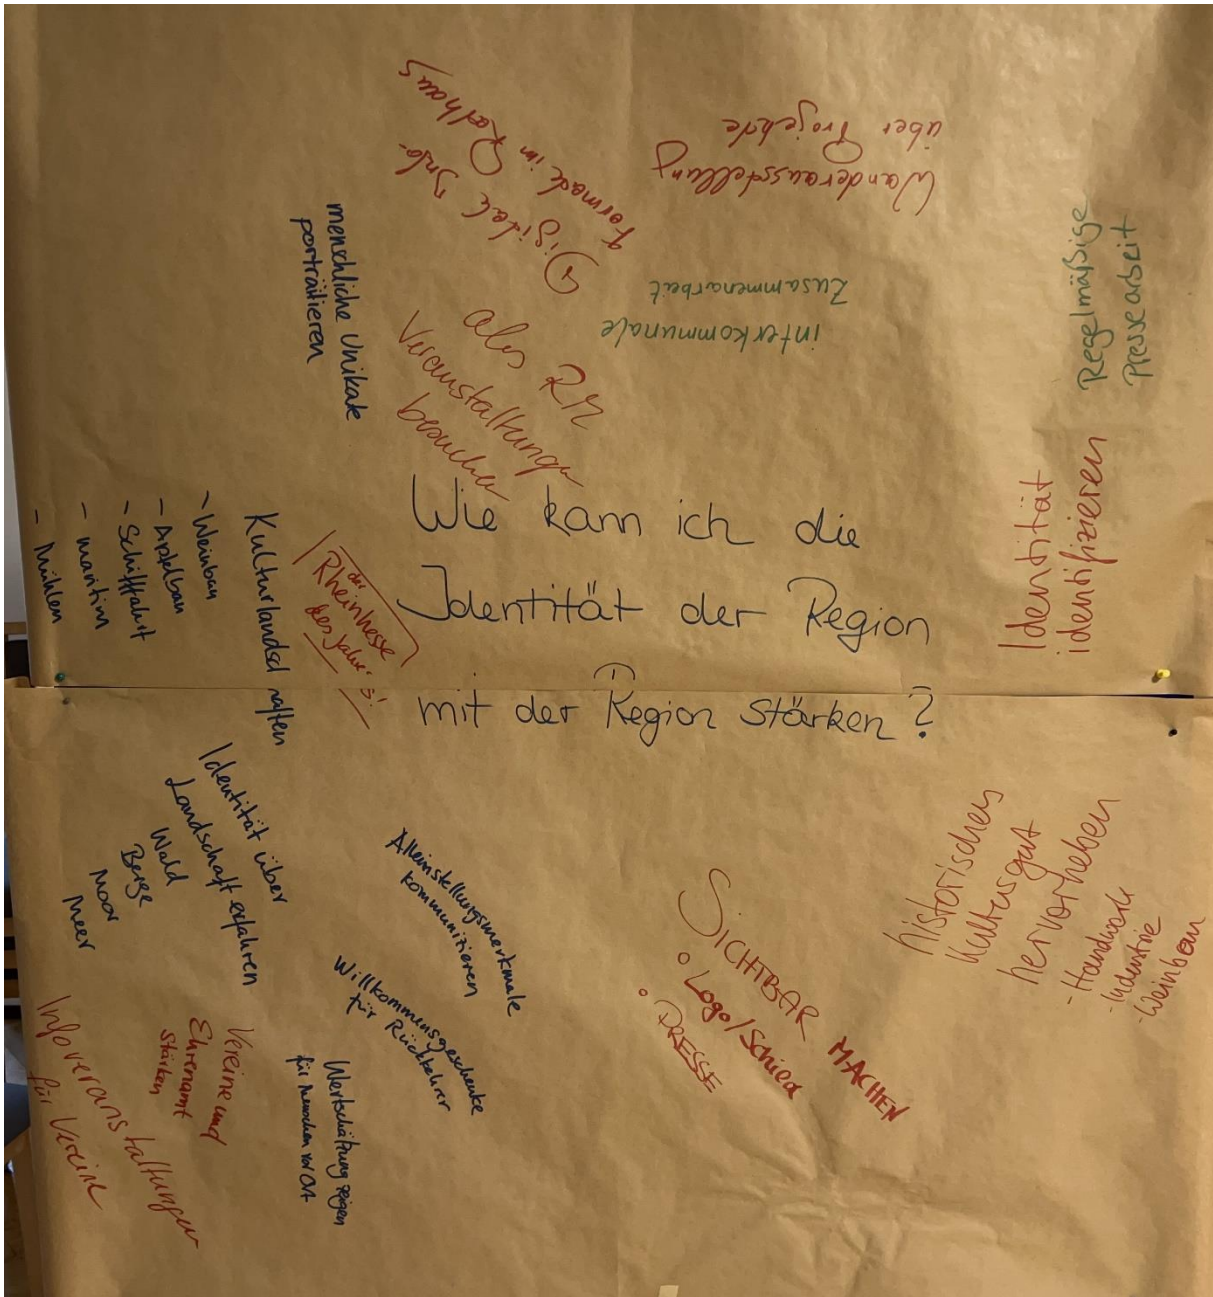 Wie kann ich die
Identität der Region
mit der Region stärken?
Digitale Info-
formate im Rathaus
Wanderausstellung
über Projekte
interkommunale
Zusammenarbeit
Regelmäßige
Pressearbeit
menschliche Unikate
porträtieren
als RM
Veranstaltungen
besuchen
Identität
identifizieren
Kulturlandschaften
- Weinbau
- Apfelbau
- Schifffahrt
- maritim
- Mühlen
der
Rheinhesse
des Jahres!
Identität über
Landschaft erfahren
Wald
Berge
Moor
Meer
Alleinstellungsmerkmale
kommunizieren
Willkommensgeschenke
für Rückkehrer
Wertschätzung zeigen
für Menschen vor Ort
Vereine und
Ehrenamt
stärken
Infoveranstaltungen
für Vereine
SICHTBAR MACHEN
° Logo/Schild
° PRESSE
historisches
Kulturgut
hervorheben
- Handwerk
- Industrie
- Weinbau